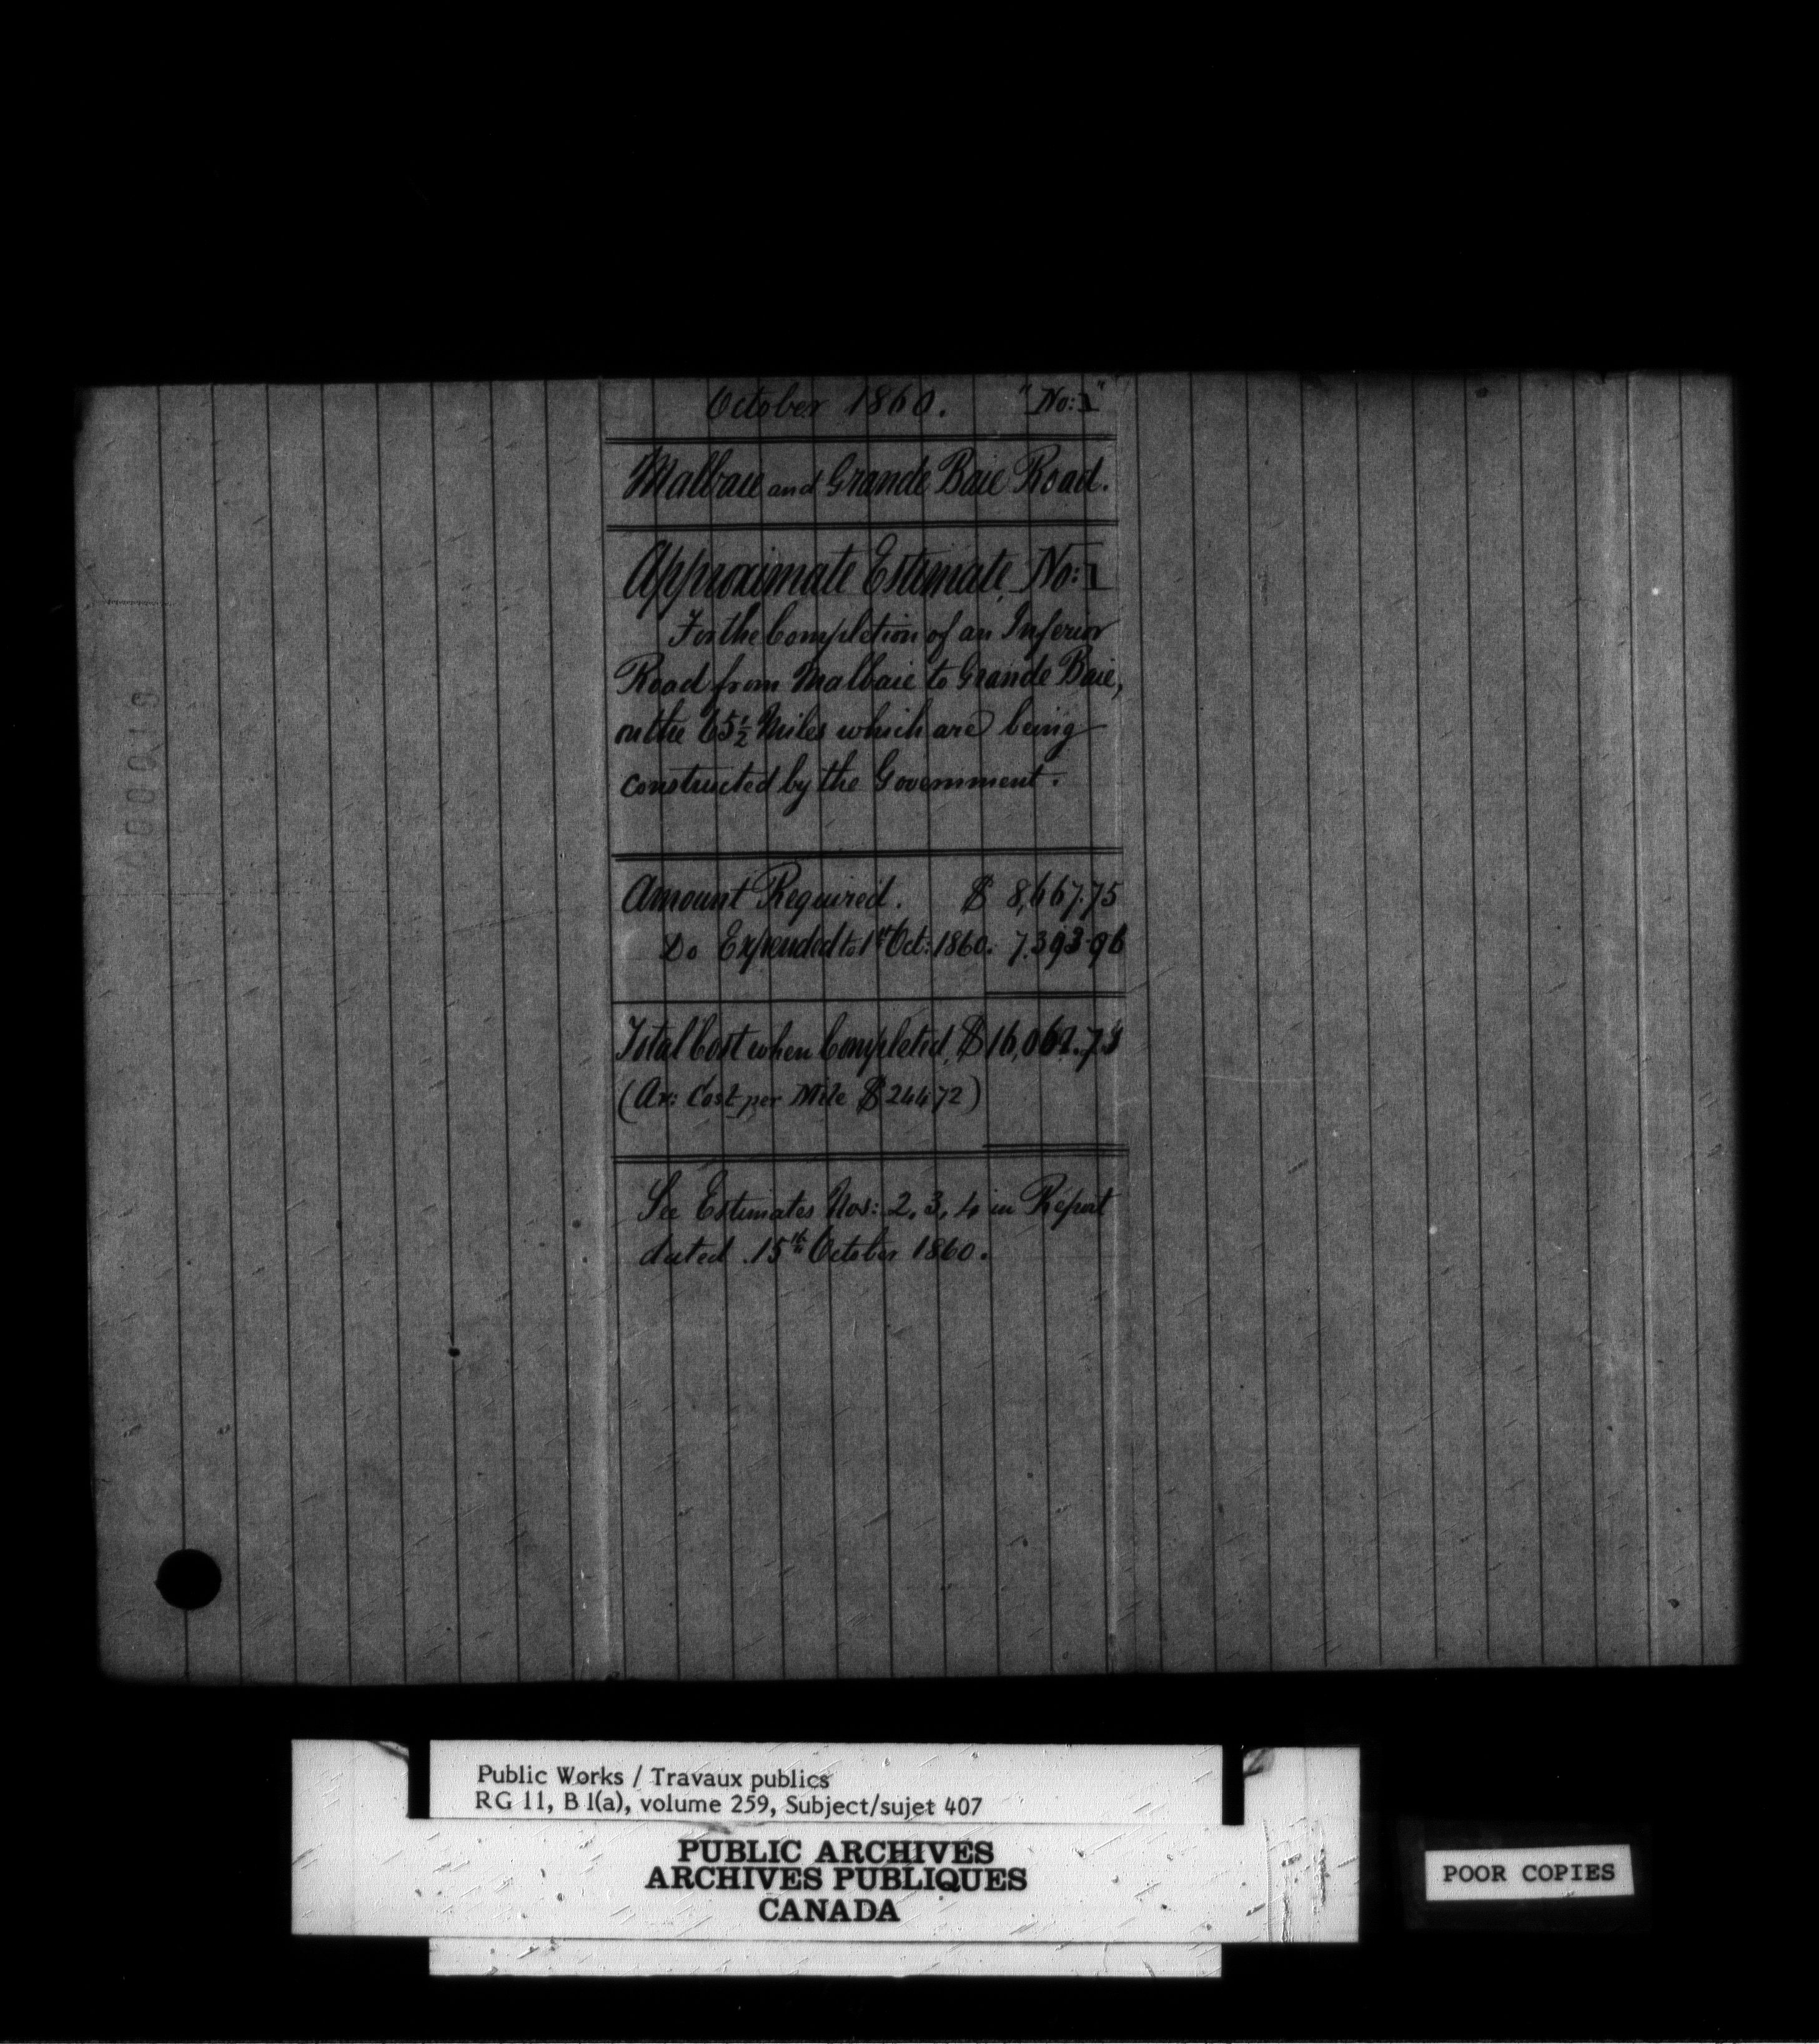 October 1860. "No: 1"
Malbaie and Grande Baie Road.
Approximate Estimate, No: 1
For the Completion of an Inferior
Road from Malbaie to Grande Baie,
on the 65½ Miles which are being
constructed by the Government.
Amount Required. $ 8,667.75
Do Expended to 1st Oct: 1860. 7.393-96
Total Cost when Completed, $
(Av: Cost per Mile $24472)
See Estimates Nos: 2, 3, 4 in Report
dated 15th October 1860.
Public Works / Travaux publics
RG 11, B 1(a), volume 259, Subject/sujet 407
PUBLIC ARCHIVES
ARCHIVES PUBLIQUES
CANADA
POOR COPIES